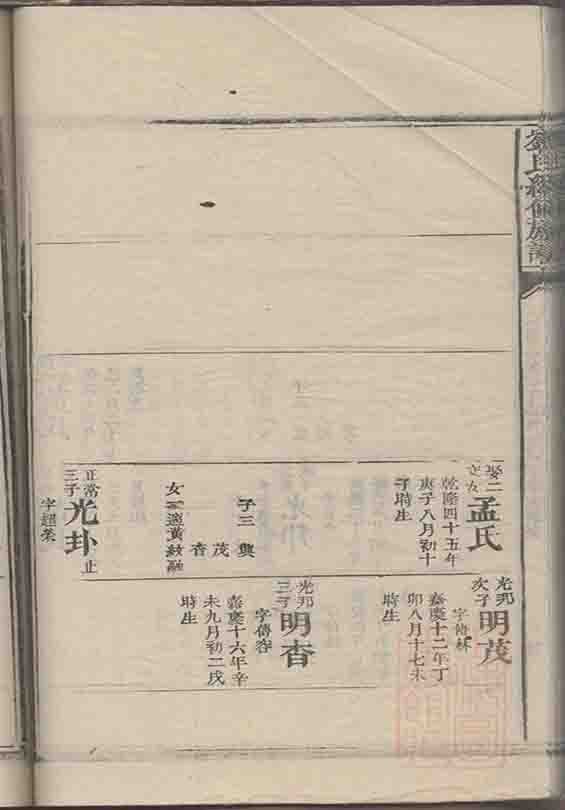 氏續修族譜
娶二
孟氏
乾隆四十五年
庚子八月初十
子時生
子三 興
茂
杳
女一適黃紋融
正常
三子
光卦
止
字超榮
光邦
次子
明茂
字傳林
嘉慶十二年丁
卯八月十七未
時生
光邦
三子
明杳
字傳容
嘉慶十六年辛
未九月初二戌
時生